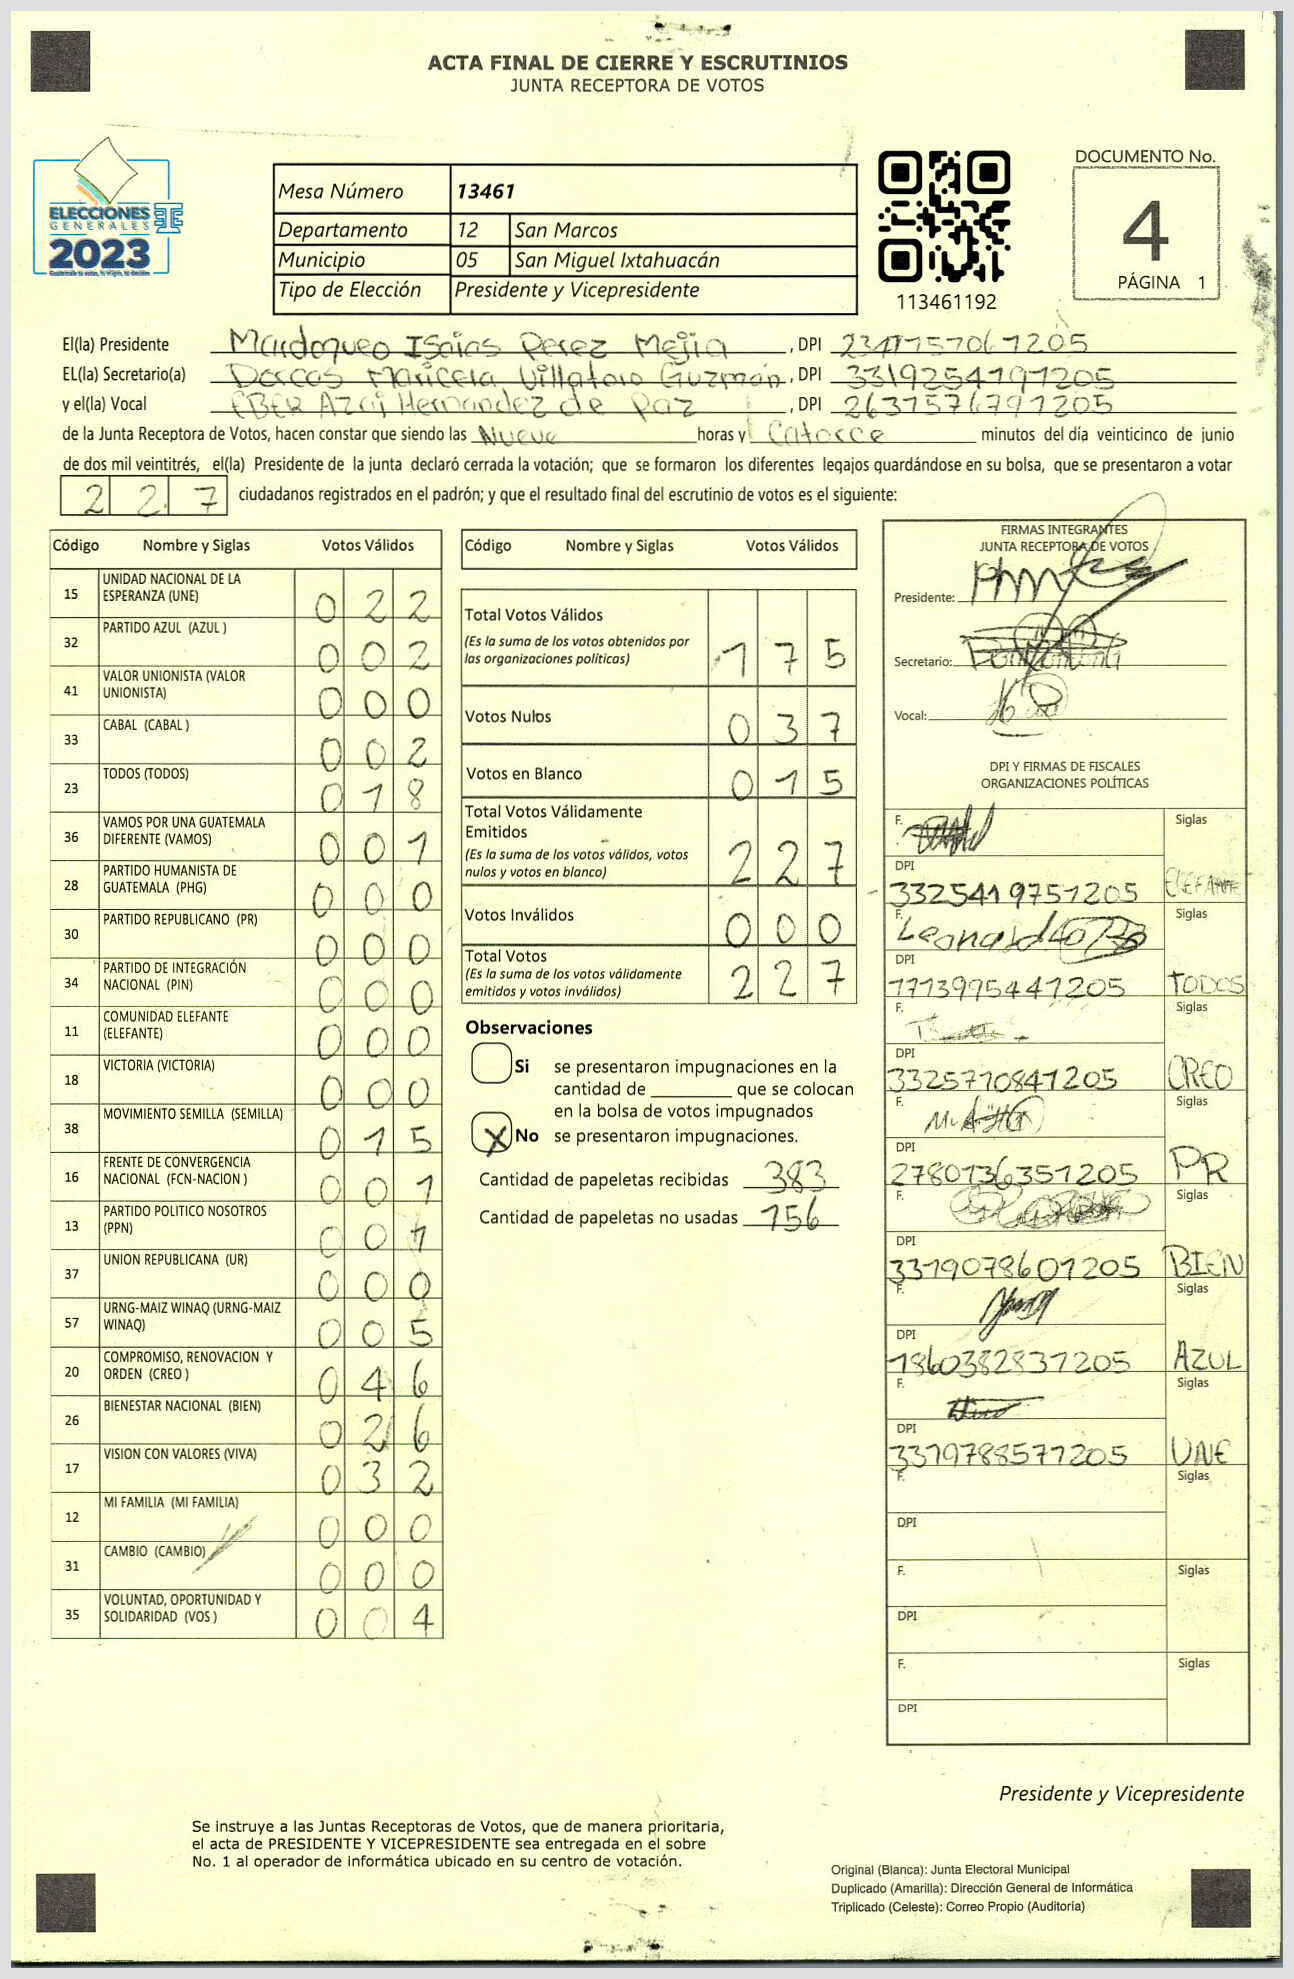 ACTA FINAL DE CIERRE Y ESCRUTINIOS
JUNTA RECEPTORA DE VOTOS
ELECCIONES
GENERALES
2023
Mesa Número 13461
Departamento 12 San Marcos
Municipio 05 San Miguel Ixtahuacán
Tipo de Elección Presidente y Vicepresidente
113461192
DOCUMENTO No.
4
PÁGINA 1
El(la) Presidente Mardoqueo Isaías Perez Mejía, DPI
EL(la) Secretario(a) Dorcas Maricela Villatoro Guzmán, DPI 3319254191205
y el(la) Vocal EBER Azai Hernandez de Paz, DPI 2631576791205
de la Junta Receptora de Votos, hacen constar que siendo las Nueve horas y Catorce minutos del día veinticinco de junio
de dos mil veintitrés, el(la) Presidente de la junta declaró cerrada la votación; que se formaron los diferentes legajos guardándose en su bolsa, que se presentaron a votar
227 ciudadanos registrados en el padrón; y que el resultado final del escrutinio de votos es el siguiente:
Código Nombre y Siglas Votos Válidos
15 UNIDAD NACIONAL DE LA ESPERANZA (UNE) 022
32 PARTIDO AZUL (AZUL ) 002
41 VALOR UNIONISTA (VALOR UNIONISTA) 000
33 CABAL (CABAL ) 002
23 TODOS (TODOS) 018
36 VAMOS POR UNA GUATEMALA DIFERENTE (VAMOS) 001
28 PARTIDO HUMANISTA DE GUATEMALA (PHG) 000
30 PARTIDO REPUBLICANO (PR) 000
34 PARTIDO DE INTEGRACIÓN NACIONAL (PIN) 000
11 COMUNIDAD ELEFANTE (ELEFANTE) 000
18 VICTORIA (VICTORIA) 000
38 MOVIMIENTO SEMILLA (SEMILLA) 015
16 FRENTE DE CONVERGENCIA NACIONAL (FCN-NACION ) 001
13 PARTIDO POLITICO NOSOTROS (PPN) 001
37 UNION REPUBLICANA (UR) 000
57 URNG-MAIZ WINAQ (URNG-MAIZ WINAQ) 005
20 COMPROMISO, RENOVACION Y ORDEN (CREO ) 046
26 BIENESTAR NACIONAL (BIEN) 026
17 VISION CON VALORES (VIVA) 032
12 MI FAMILIA (MI FAMILIA) 000
31 CAMBIO (CAMBIO) 000
35 VOLUNTAD, OPORTUNIDAD Y SOLIDARIDAD (VOS ) 004
Código Nombre y Siglas Votos Válidos
Total Votos Válidos 175
(Es la suma de los votos obtenidos por
las organizaciones políticas)
Votos Nulos 037
Votos en Blanco 015
Total Votos Válidamente
Emitidos 227
(Es la suma de los votos válidos, votos
nulos y votos en blanco)
Votos Inválidos 000
Total Votos 227
(Es la suma de los votos válidamente
emitidos y votos inválidos)
Observaciones
Si se presentaron impugnaciones en la
cantidad de ________ que se colocan
en la bolsa de votos impugnados
X No se presentaron impugnaciones.
Cantidad de papeletas recibidas 383
Cantidad de papeletas no usadas 156
FIRMAS INTEGRANTES
JUNTA RECEPTORA DE VOTOS
Presidente:
Secretario:
Vocal:
DPI Y FIRMAS DE FISCALES
ORGANIZACIONES POLÍTICAS
F. Siglas
DPI
3325419751205 ELEFANTE
F. Siglas
DPI
1713995441205 TODOS
F. Siglas
DPI
3325710841205 CREO
F. Siglas
DPI
2780136351205 PR
F. Siglas
DPI
3319078601205 BIEN
F. Siglas
DPI
1860382831205 AZUL
F. Siglas
DPI
3319788571205 UNE
F. Siglas
DPI
F. Siglas
DPI
F. Siglas
DPI
Presidente y Vicepresidente
Se instruye a las Juntas Receptoras de Votos, que de manera prioritaria,
el acta de PRESIDENTE Y VICEPRESIDENTE sea entregada en el sobre
No. 1 al operador de informática ubicado en su centro de votación.
Original (Blanca): Junta Electoral Municipal
Duplicado (Amarilla): Dirección General de Informática
Triplicado (Celeste): Correo Propio (Auditoría)